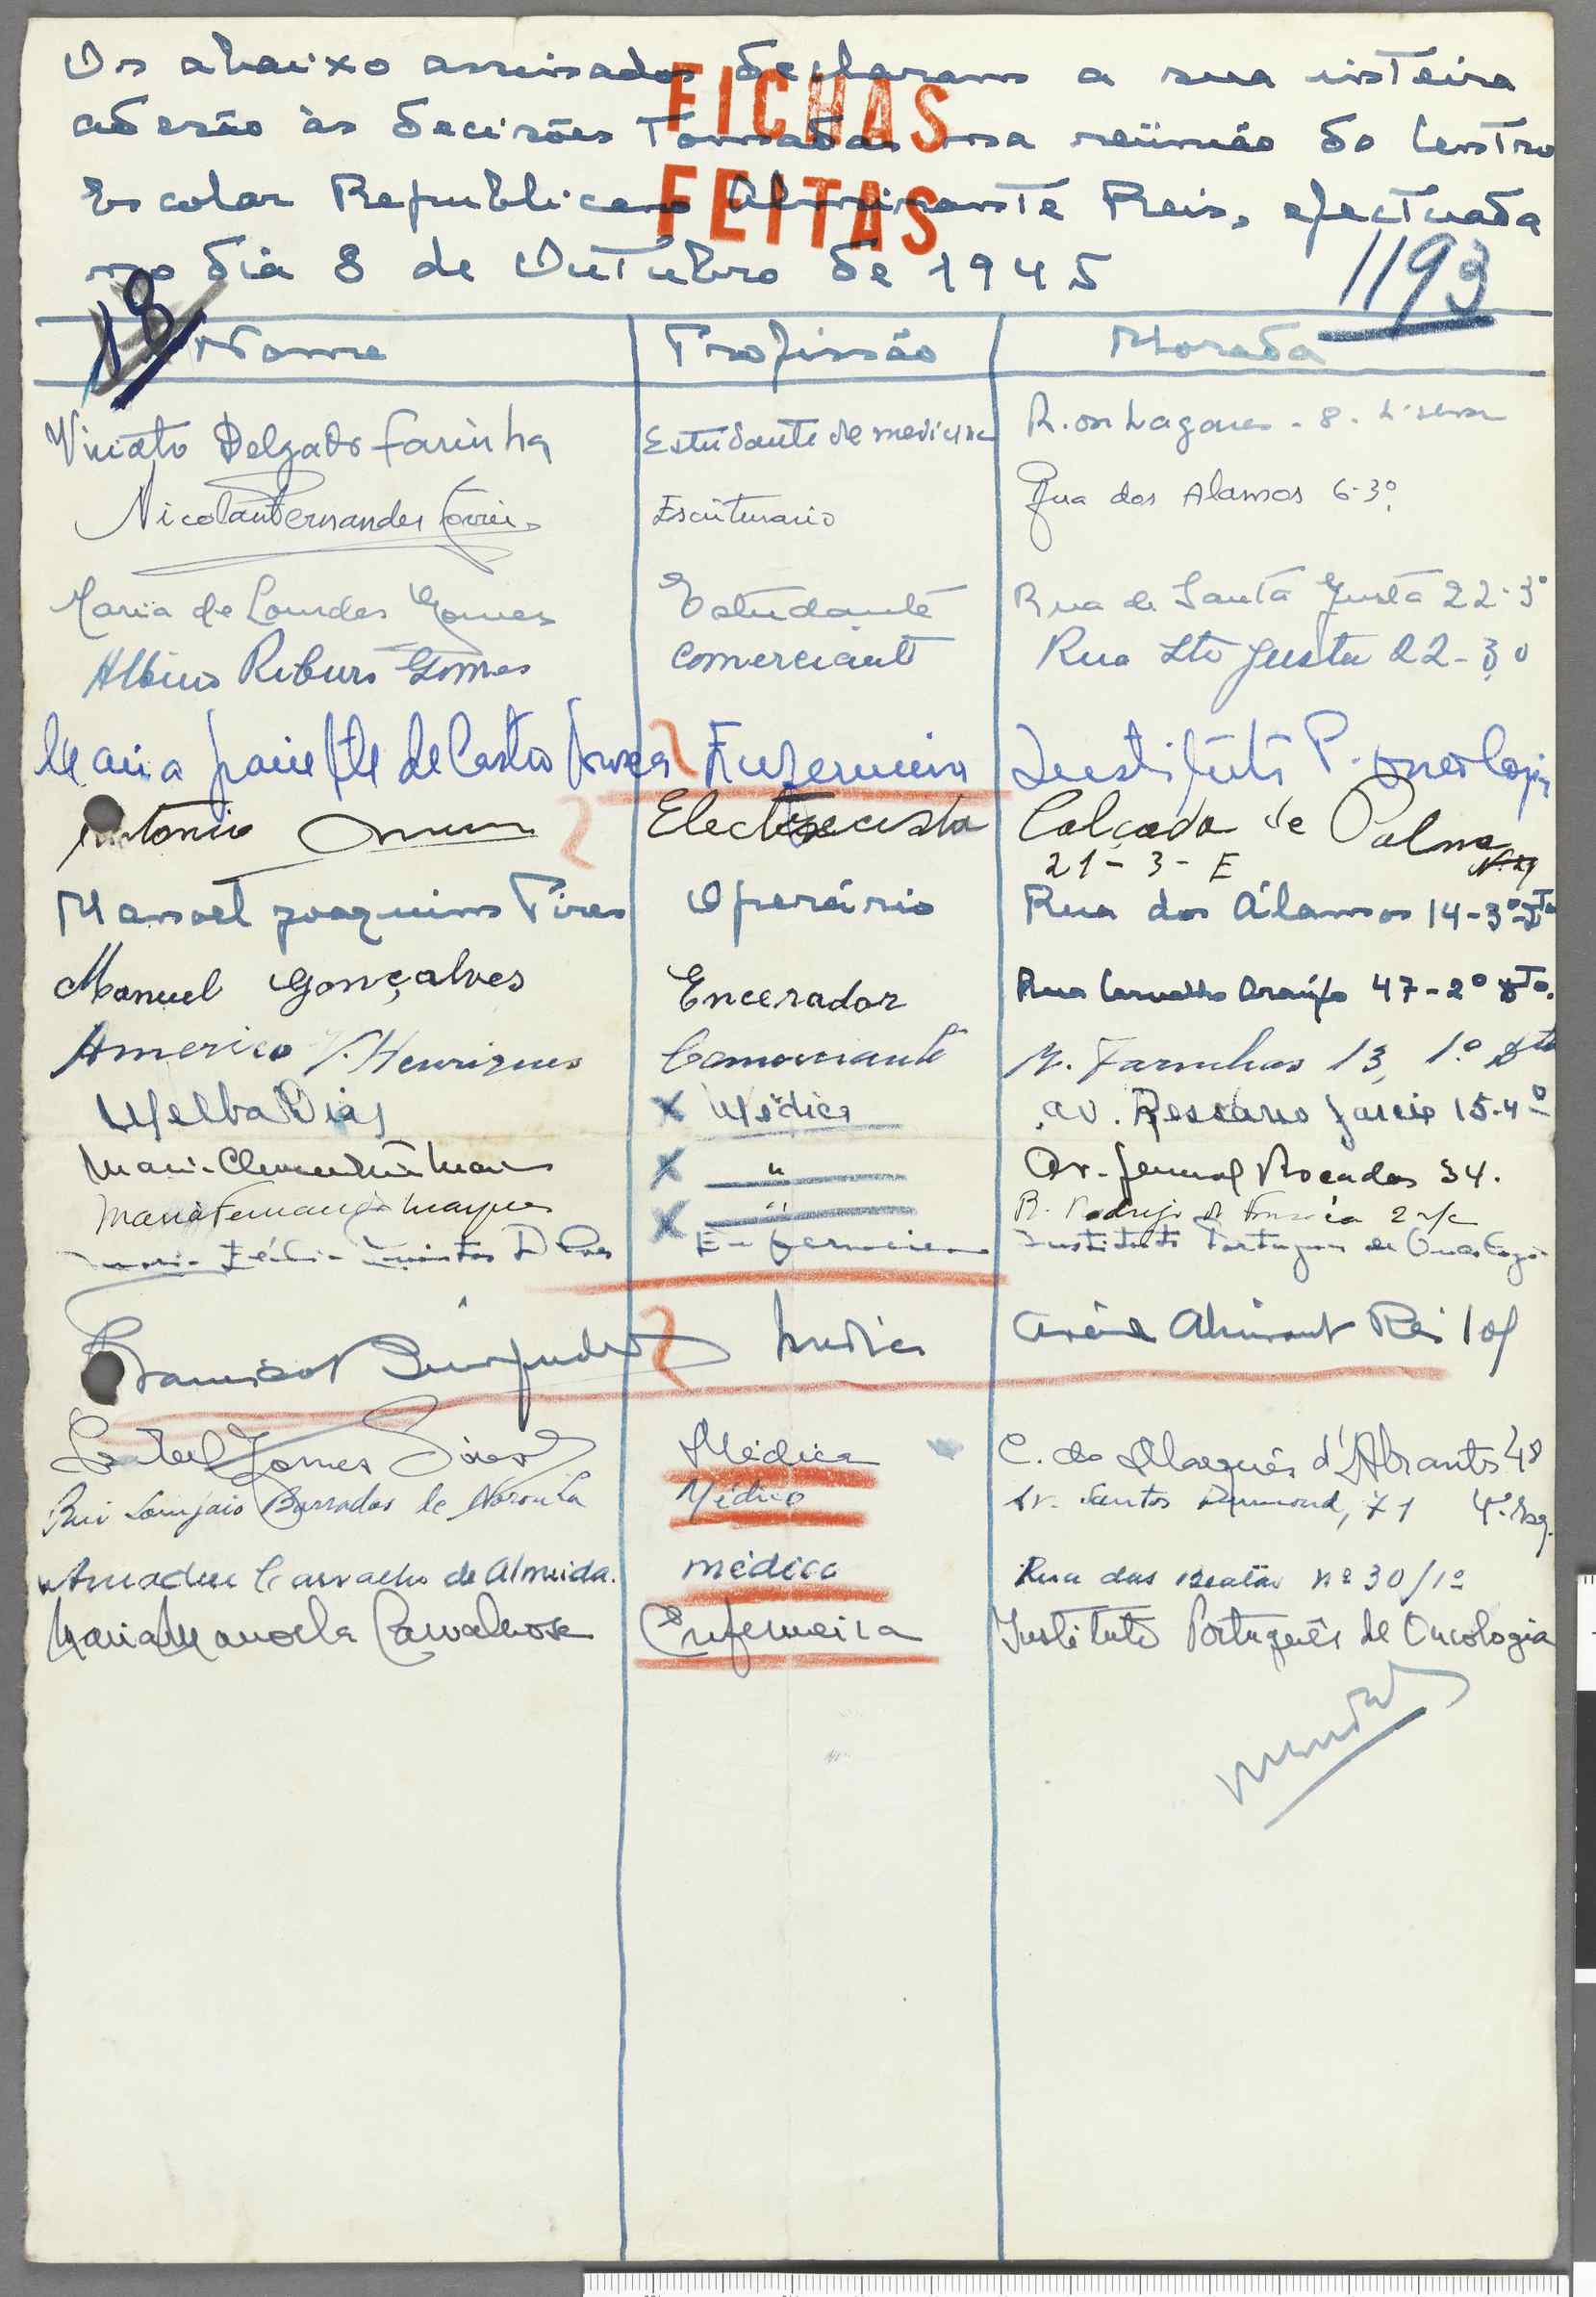 Os abaixo assinados declaram a sua inteira
adesão às decisões tomadas na reünião do Centro
Escolar Republicano Almirante Reis, efectuada
no dia 8 de Outubro de 1945
FICHAS
FEITAS
1193
18
Nome Profissão Morada
Viriato Delgado Farinha Estudante de medicina R. os Lagares - 8. Lisboa
Nicolau Fernandes Escriturario Rua dos Alamos 6-3º
Maria de Lourdes Gomes Estudante Rua de Santa Justa 22-3º
Albino Ribeiro Gomes Comerciante Rua Sta Justa 22-3º
Maria de Castro Enfermeira Instituto P. Oncologia
Antonio Electrecista Calçada de Palma
21-3-E
Manoel Joaquim Pires Operário Rua dos Álamos 14-3º-Dto
Manuel Gonçalves Encerador Rua Carvalho Araújo 47-2º Dto.
Americo Henriques Comerciante M. Farinhas 13, 1.º Dto
Melba Dias Médica Av. Ressano Garcia 15-4º
Maria Clementina " Av. General Rocadas 34.
Maria Fernanda Marques " R. Rodrigo da Fonseca 2 r/c
Maria Enfermeira Instituto Português de Oncologia
Médico Almirante Reis
Gomes Médica C. do Marquês d'Abrantes 48
Rui Barradas de Noronha Médico Av. Santos Dumond, 71 4º Esq.
Amadeu Carvalho de Almeida. médico Rua das Beatas nº 30/1º
Maria Manoela Carvalhosa Enfermeira Instituto Português de Oncologia